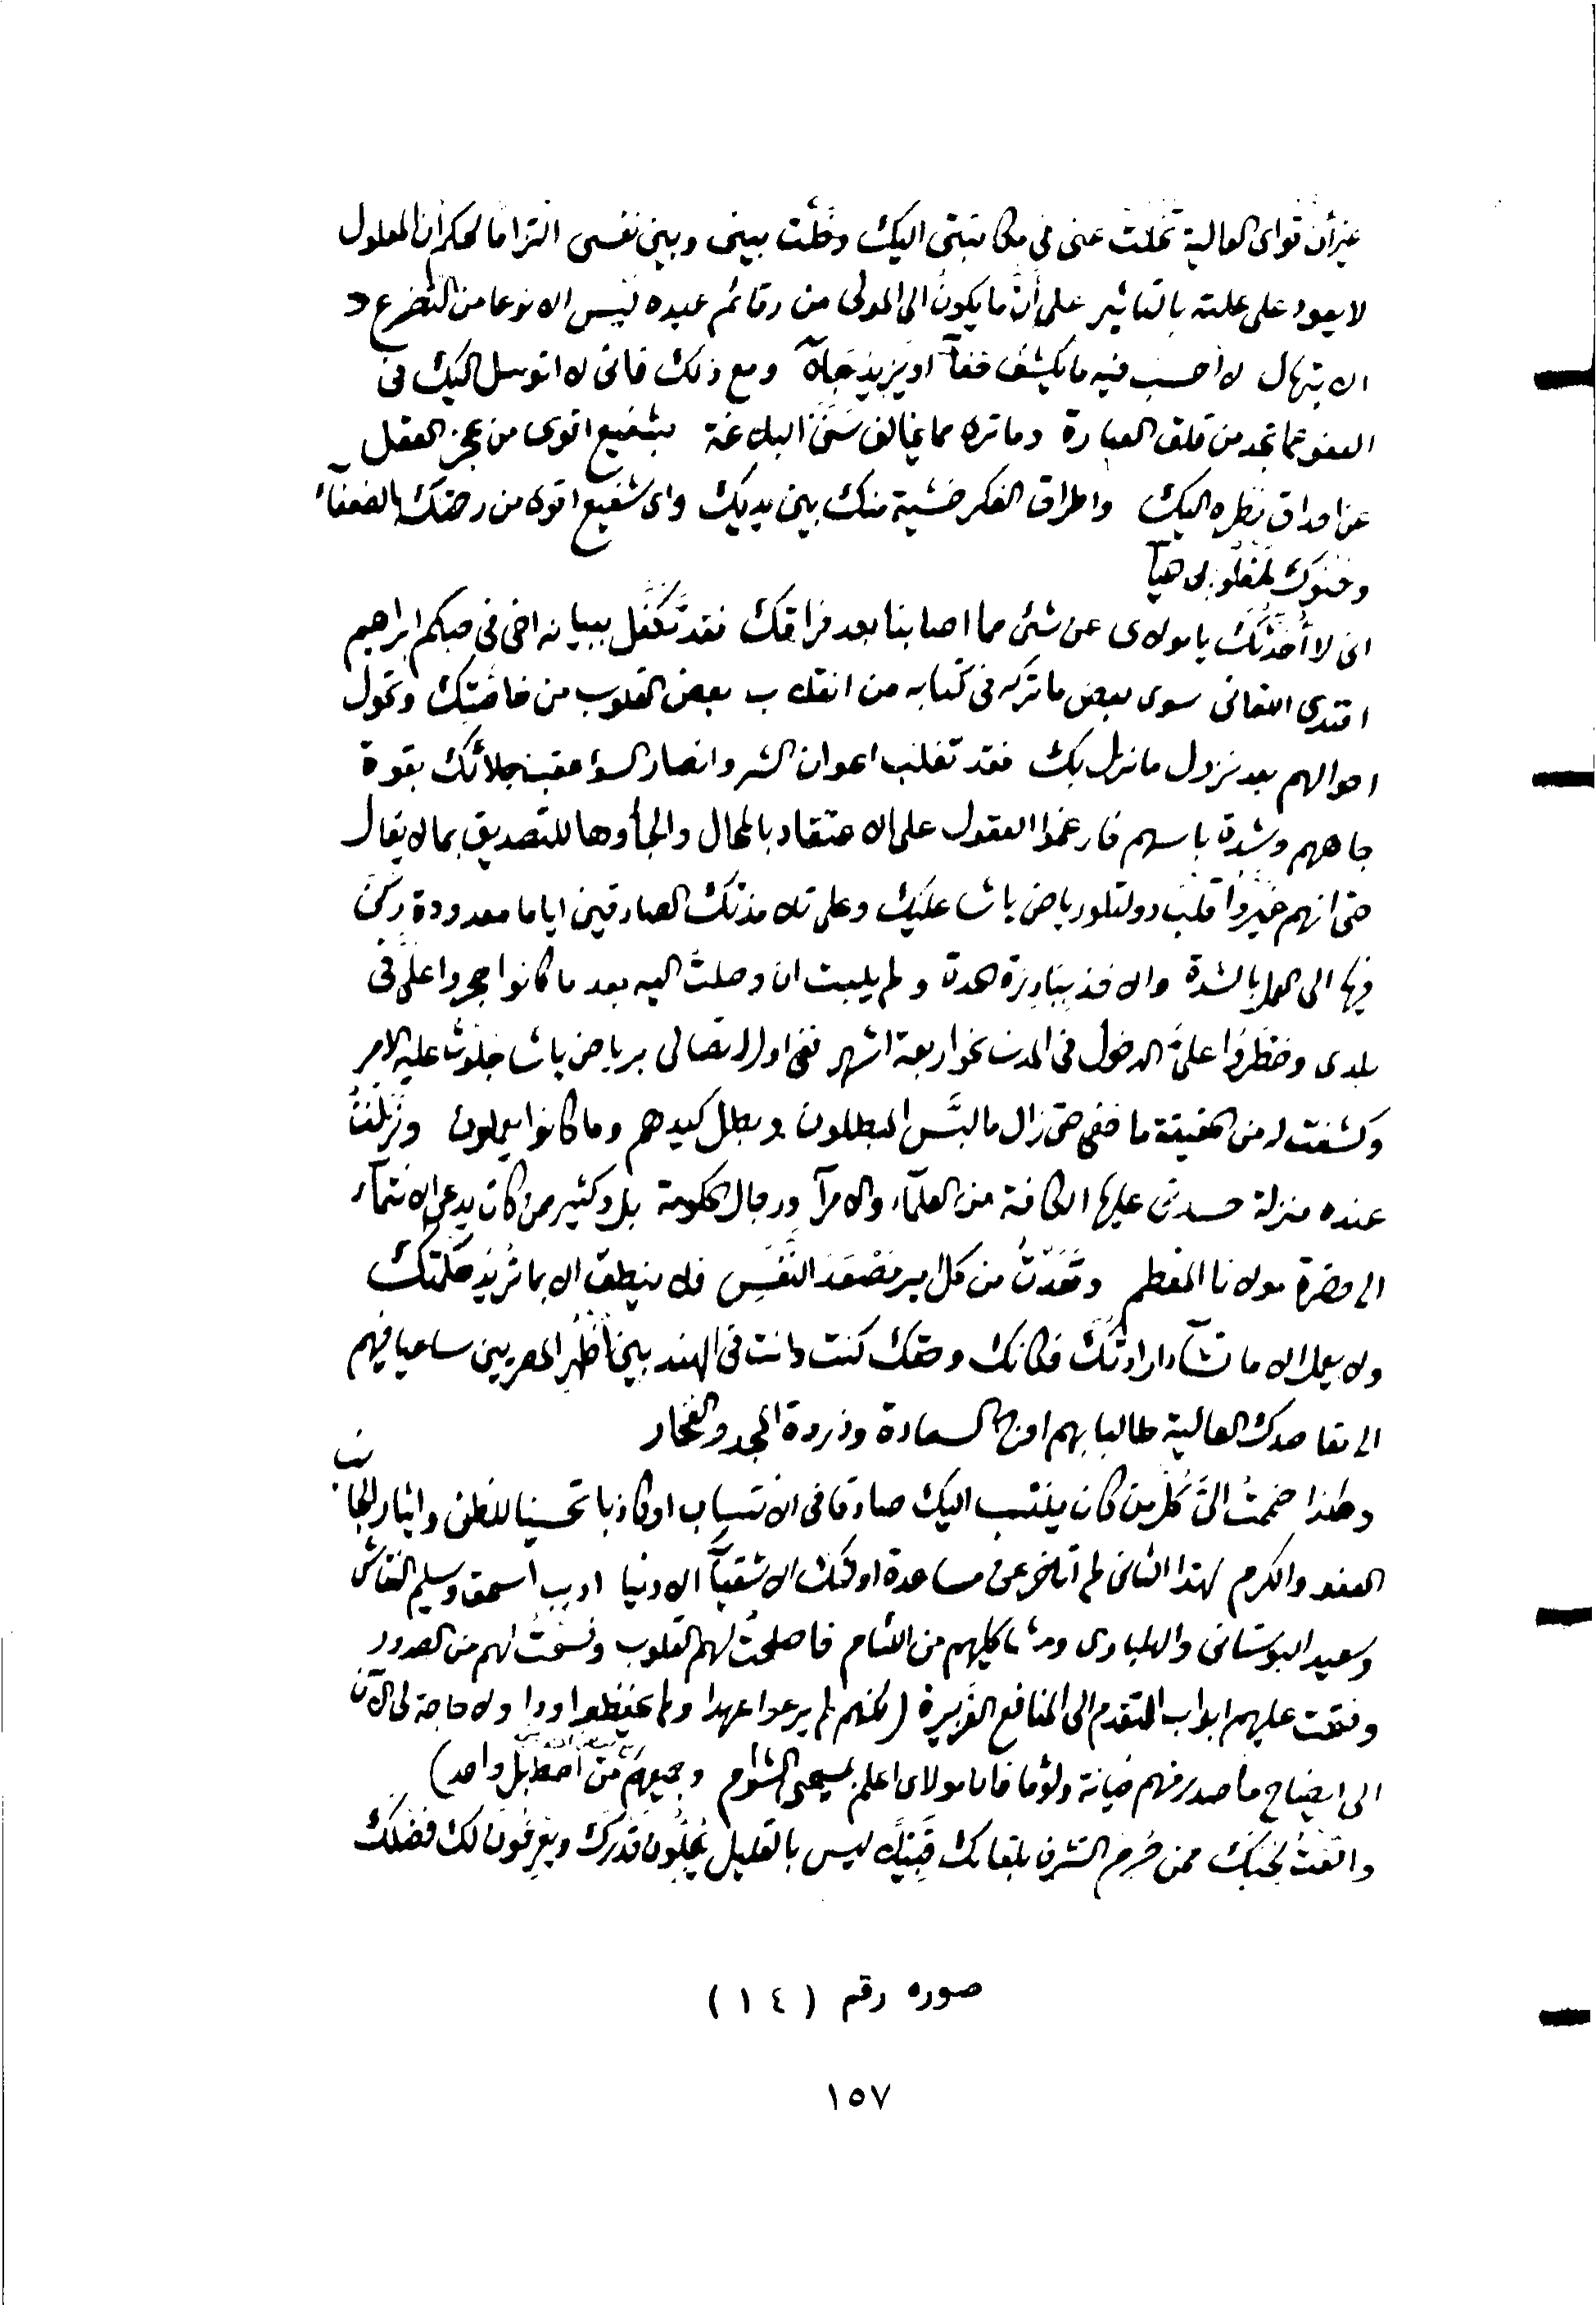 غير أن قواى العالية تخلت عنى فى مكاتبتى اليك وخلّت بينى وبين نفسى التزاما لحكم أن المعلول
لا يعود على علته بالتاثير على أنّ ما يكون الى المولى من رقائم عبيده ليس الا نوعا من التضرع و
الابتهال لا أحسب فيه ما يكشف خفآ او يزيد جلآ ومع ذلك فانى لا اتوسل اليك فى
العفو عما تجد من قلق العبارة وما تراه مما يخالف سنن البلاغة بشفيع اقوى من عجز العقل
عن احداق نظره اليك واطراق الفكر خشية منك بين يديك واى شفيع اقوى من رحمتك بالضعفآء
وحنوك لمغلوبى حيآ
انى لا أحدّثك يا مولاى عن شئ مما اصابنا بعد فراقك فقد تكفّل ببيانه اخى فى حبكم ابراهيم
افندى اللقانى سوى بعض ما تركه فى كتابه من انقلاب بعض القلوب من خاصّتك وتحول
احوالهم بعد نزول ما نزل بك فقد تغلب اعوان الشر وانصار السؤ عقب جلائك بقوة
جاههم وشدة باسهم فارغموا العقول على الاعتقاد بالمحال والجأوها للتصديق بما لا يقال
حتى انهم غيّروا قلب دولتلو رياض باشا عليك وعلى تلامذتك الصادقين اياما معدودة ركن
فيها الى العمل بالشدة والاخذ ببادرة الحدة ولم يلبث ان وصلت اليه بعد ما كانوا حجروا علىّ فى
بلدى وحظروا علىّ الدخول فى المدن نحو اربعة اشهر ففى اول اتصالى برياض باشا جلوت عليه الامر
وكشفت له من الحقيقة ما خفى حتى زال ما لبّس المبطلون وبطل كيدهم وما كانوا يعملون ونزلت
عنده منزلة حسدنى عليها الكافة من العلمآء والامرآ ورجال الحكومة بل وكثير ممن كان يدعى الانتمآء
الى حضرة مولانا المعظم وقعدت من كل امير مقعد النفس فلا ينطق الا بما تريد حكمتك
ولا يعمل الا ما تشآء ارادتك فكانك وحقك كنت وانت فى الهند بين أظهر المصريين ساعيا فيهم
الى مقاصدك العالية طالبا بهم اوج السعادة وذروة المجد والفخار
وهكذا ضممت الىّ كل من كان ينتسب اليك صادقا فى الانتساب او كاذبا تحسينا للظن وايثار الجانب
العفو والكرم لهذا الثانى لم اتاخر عن مساعدة اولئك الاشقيآ الادنيا اديب اسحق وسليم النقاش
وسعيد البوستانى والهلباوى ومشاكليهم من الشام فاصلحت لهم القلوب وفسحت لهم من الصدور
وفتحت عليهم ابواب التقدم الى المنافع الغزيرة (لكنهم لم يرعوا عهدا ولم يحفظوا ودا ولا حاجة لى الآن
الى ايضاح ما صدر منهم خيانة ولؤما فان مولاى اعلم بمسيحى الشوام وجميعهم من اصطبل واحد)
واتخذت لحبك ممن حرم التشرف بلقائك قبيلا ليس بالقليل يجلّون قدرك ويعرفون لك فضلك
صوره رقم (١٤)
١٥٧